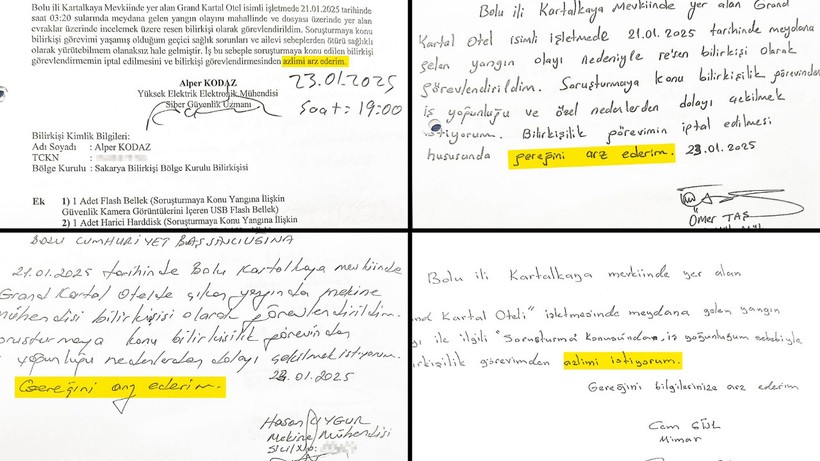 Bolu ili Kartalkaya Mevkiinde yer alan Grand Kartal Otel isimli işletmede 21.01.2025 tarihinde
saat 03:20 sularında meydana gelen yangın olayını mahallinde ve dosyası üzerinde yer alan
evraklar üzerinde incelemek üzere resen bilirkişi olarak görevlendirildim. Soruşturmaya konu
bilirkişi görevimi yaşamış olduğum geçici sağlık sorunları ve ailevi sebeplerden ötürü sağlıklı
olarak yürütebilmem olanaksız hale gelmiştir. İş bu sebeple soruşturma konu edilen bilirkişi
görevlendirmemin iptal edilmesini ve bilirkişi görevlendirmesinden azlimi arz ederim.
Alper KODAZ
Yüksek Elektrik Elektronik Mühendisi
Siber Güvenlik Uzmanı
23.01.2025
Saat: 19:00
Bilirkişi Kimlik Bilgileri:
Adı Soyadı : Alper KODAZ
TCKN :
Bölge Kurulu : Sakarya Bilirkişi Bölge Kurulu Bilirkişisi
Ek 1) 1 Adet Flash Bellek (Soruşturmaya Konu Yangına İlişkin
Güvenlik Kamera Görüntülerini İçeren USB Flash Bellek)
2) 1 Adet Harici Harddisk (Soruşturmaya Konu Yangına İlişkin
Bolu ili Kartalkaya Mevkiinde yer alan Grand
Kartal Otel isimli işletmede 21.01.2025 tarihinde meydana
gelen yangın olayı nedeniyle re'sen bilirkişi olarak
görevlendirildim. Soruşturmaya konu bilirkişilik görevinden
iş yoğunluğu ve özel nedenlerden dolayı çekilmek
istiyorum. Bilirkişilik görevimin iptal edilmesi
hususunda gereğini arz ederim. 23.01.2025
Ömer TAŞ
BOLU CUMHURİYET BAŞSAVCILIĞINA
21.01.2025 tarihinde Bolu Kartalkaya mevkiinde
Grand Kartal Otelde çıkan yangında makine
mühendisi bilirkişisi olarak görevlendirildim.
oruşturmaya konu bilirkişilik görevinden
yoğunluğu nedenlerden dolayı çekilmek istiyorum.
Gereğini arz ederim. 23.01.2025
Hasan UYGUR
Makine Mühendisi
Sicil No:
Bolu ili Kartalkaya mevkiinde yer alan
nd Kartal Oteli" işletmesinde meydana gelen yangın
ı ile ilgili "Soruşturma konusundan, iş yoğunluğum sebebiyle
irkişilik görevimden azlimi istiyorum.
Gereğini bilgilerinize arz ederim
Cem GÜL
Mimar